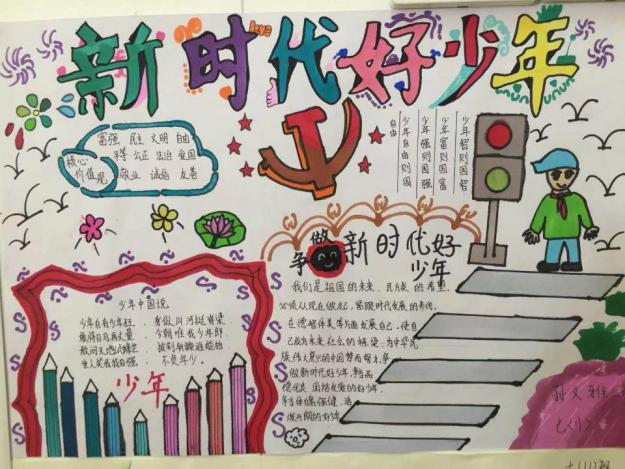 新时代好少年
Love
富强 民主 文明 自由
平等 公正 法治 爱国
敬业 诚信 友善
核心
价值观
少年智则国智
少年富则国富
少年强则国强
少年自由则国
自由
争做新时代好
少年
我们是祖国的未来、民族的希望,
必须从现在做起,紧跟时代发展的步伐,
在德智体美等方面发展自己,使自
己成为未来社会的栋梁,为中华民
族伟大复兴的中国梦而努力,争
做新时代好少年,
团结友爱的好少年,
少年中国说
少年自有少年狂,身似山河挺脊梁
敢将日月再丈量 今朝唯我少年郎
敢问天地试锋芒 披荆斩棘谁能挡
世人笑我我自强 不负年少。
少年